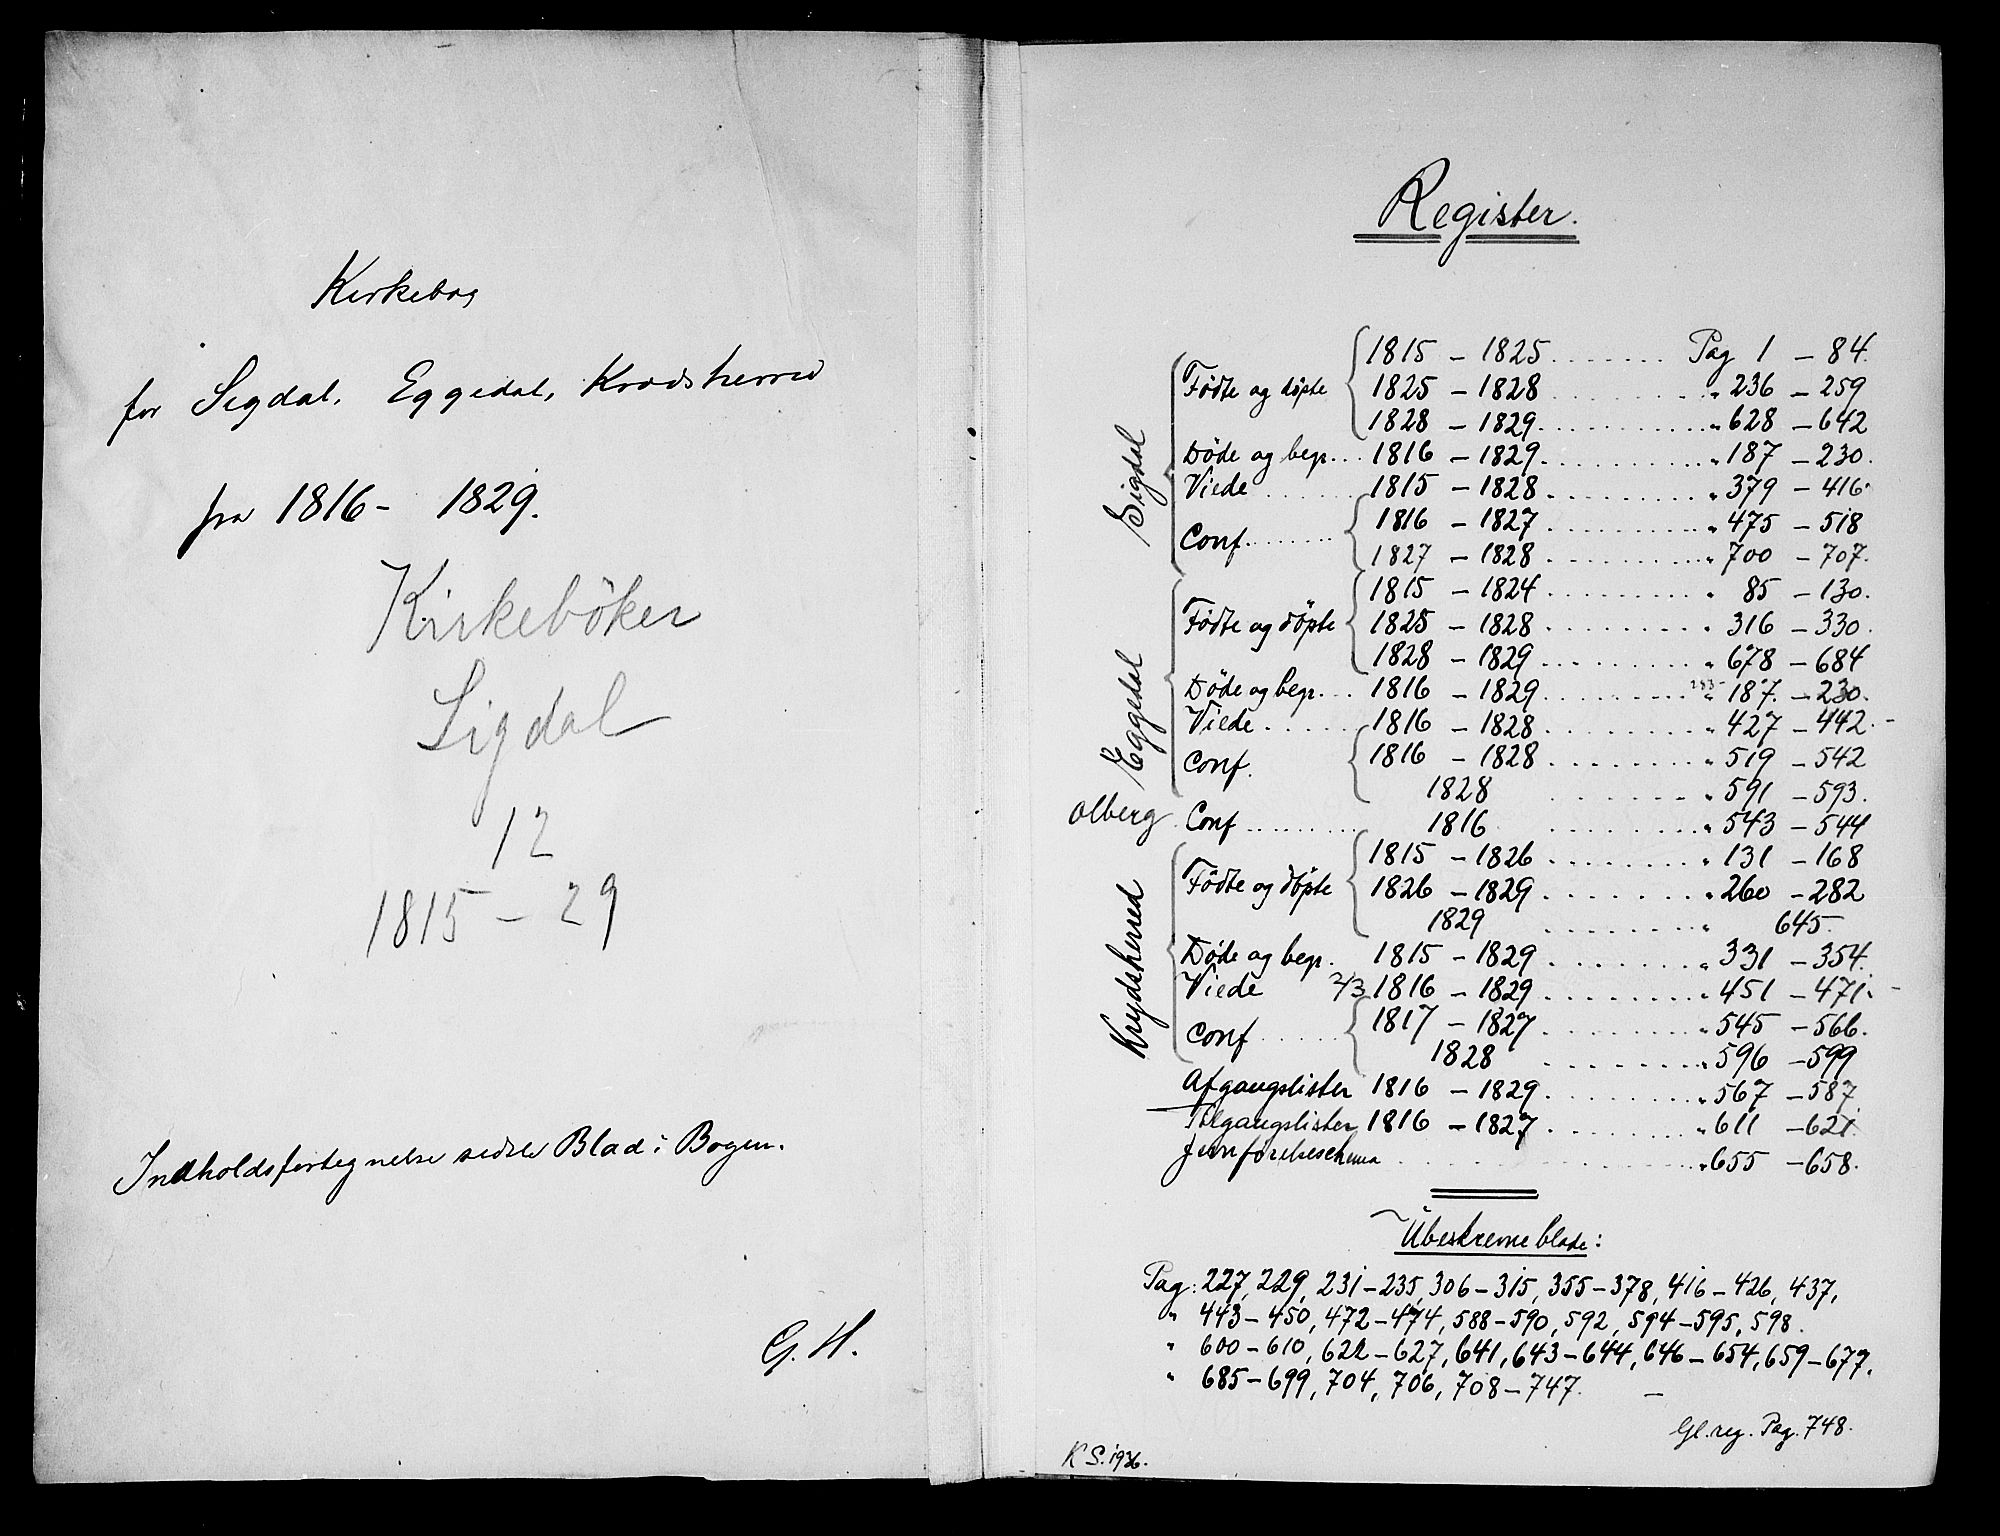 Kirkebog
for Sigdal, Eggedal, Krødsherred
fra 1816 - 1829.
Kirkebøker
Sigdal
12
1815 - 29
Indholdsfortegnelse sidste Blad i Bogen.
G. H.
Register.
Sigdal
Fødte og døpte 1815 - 1825 ....... Pag 1 - 84.
1825 - 1828 .......... " 236 - 259
1828 - 1829 .......... " 628 - 642
Døde og begr... 1816 - 1829 .......... " 187 - 230.
Viede ...... 1815 - 1828 .......... " 379 - 416.
Conf. ....... 1816 - 1827 .......... " 475 - 518
1827 - 1828 .......... " 700 - 707.
Eggedal
Fødte og døpte 1815 - 1824 .......... " 85 - 130.
1825 - 1828 .......... " 316 - 330.
1828 - 1829 .......... " 678 - 684
Døde og begr... 1816 - 1829 .......... " 187. - 230.
Viede ..... 1816 - 1828 .......... " 427 - 442. -
Conf. 1816 - 1828 .......... " 519 - 542
1828 .......... " 591 - 593.
Olberg Conf ........ 1816 .......... " 543 - 544
Krydsherred
Fødte og døpte 1815 - 1826 .......... " 131 - 168
1826 - 1829 .......... " 260 - 282
1829 .......... " 645.
Døde og begr. 1815 - 1829 .......... " 331 - 354.
Viede 2/3 1816 - 1829 .......... " 451 - 471. -
Conf ...... 1817 - 1827 .......... " 545 - 566.
1828 .......... " 596 - 599
Afgangslister 1816 - 1829 .......... " 567 - 587
Tilgangslister 1816 - 1827 .......... " 611 - 621.
Jevnførelseschema .......... " 655 - 658.
Ubeskrevne blade:
Pag: 227, 229, 231-235, 306-315, 355-378, 416-426, 437,
" 443-450, 472-474, 588-590, 592, 594-595, 598.
" 600-610, 622-627, 641, 643-644, 646-654, 659-677,
" 685-699, 704, 706, 708-747. -
Gl. reg. Pag. 748.
K S. 1936.